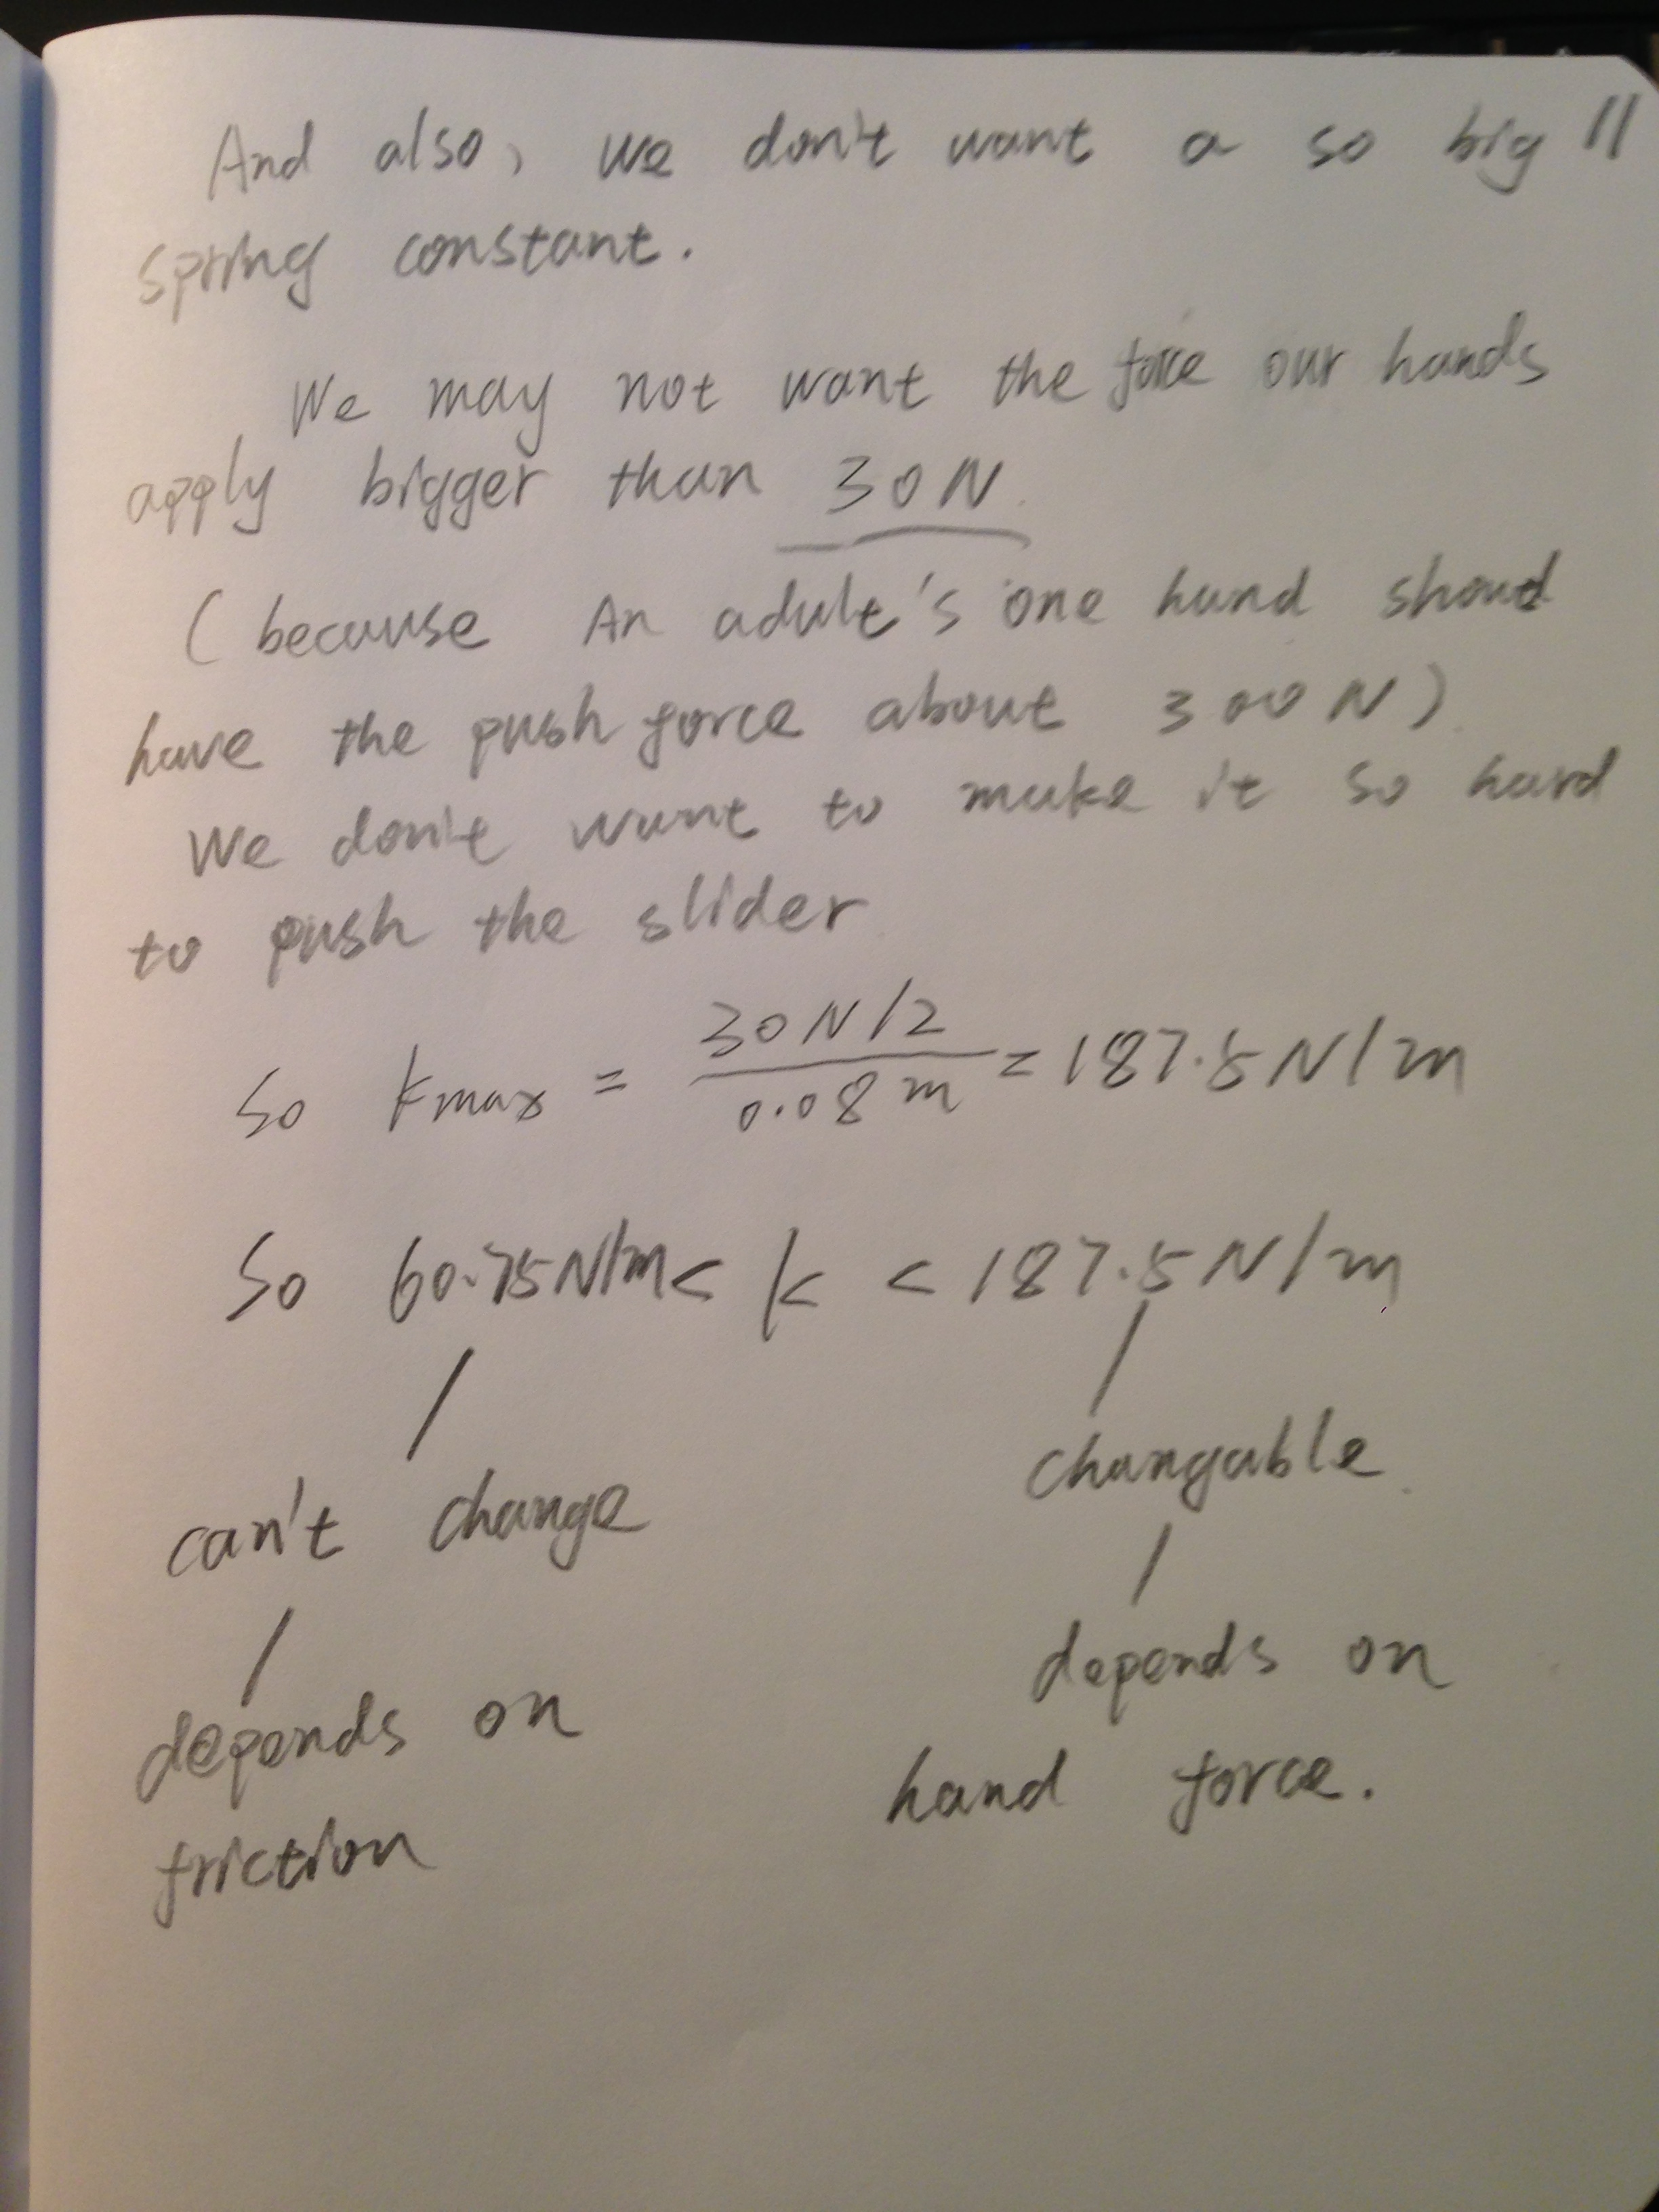 And also, we don't want a so big 11
spring constant.
We may not want the force our hands
apply bigger than 30N.
(because An adult's one hand should
have the push force about 300N).
We don't want to make it so hard
to push the slider.
So kmax = 30N/2 / 0.08m = 187.5N/m
So 60.75N/m < k < 187.5N/m
can't change changable.
depends on depends on
friction hand force.